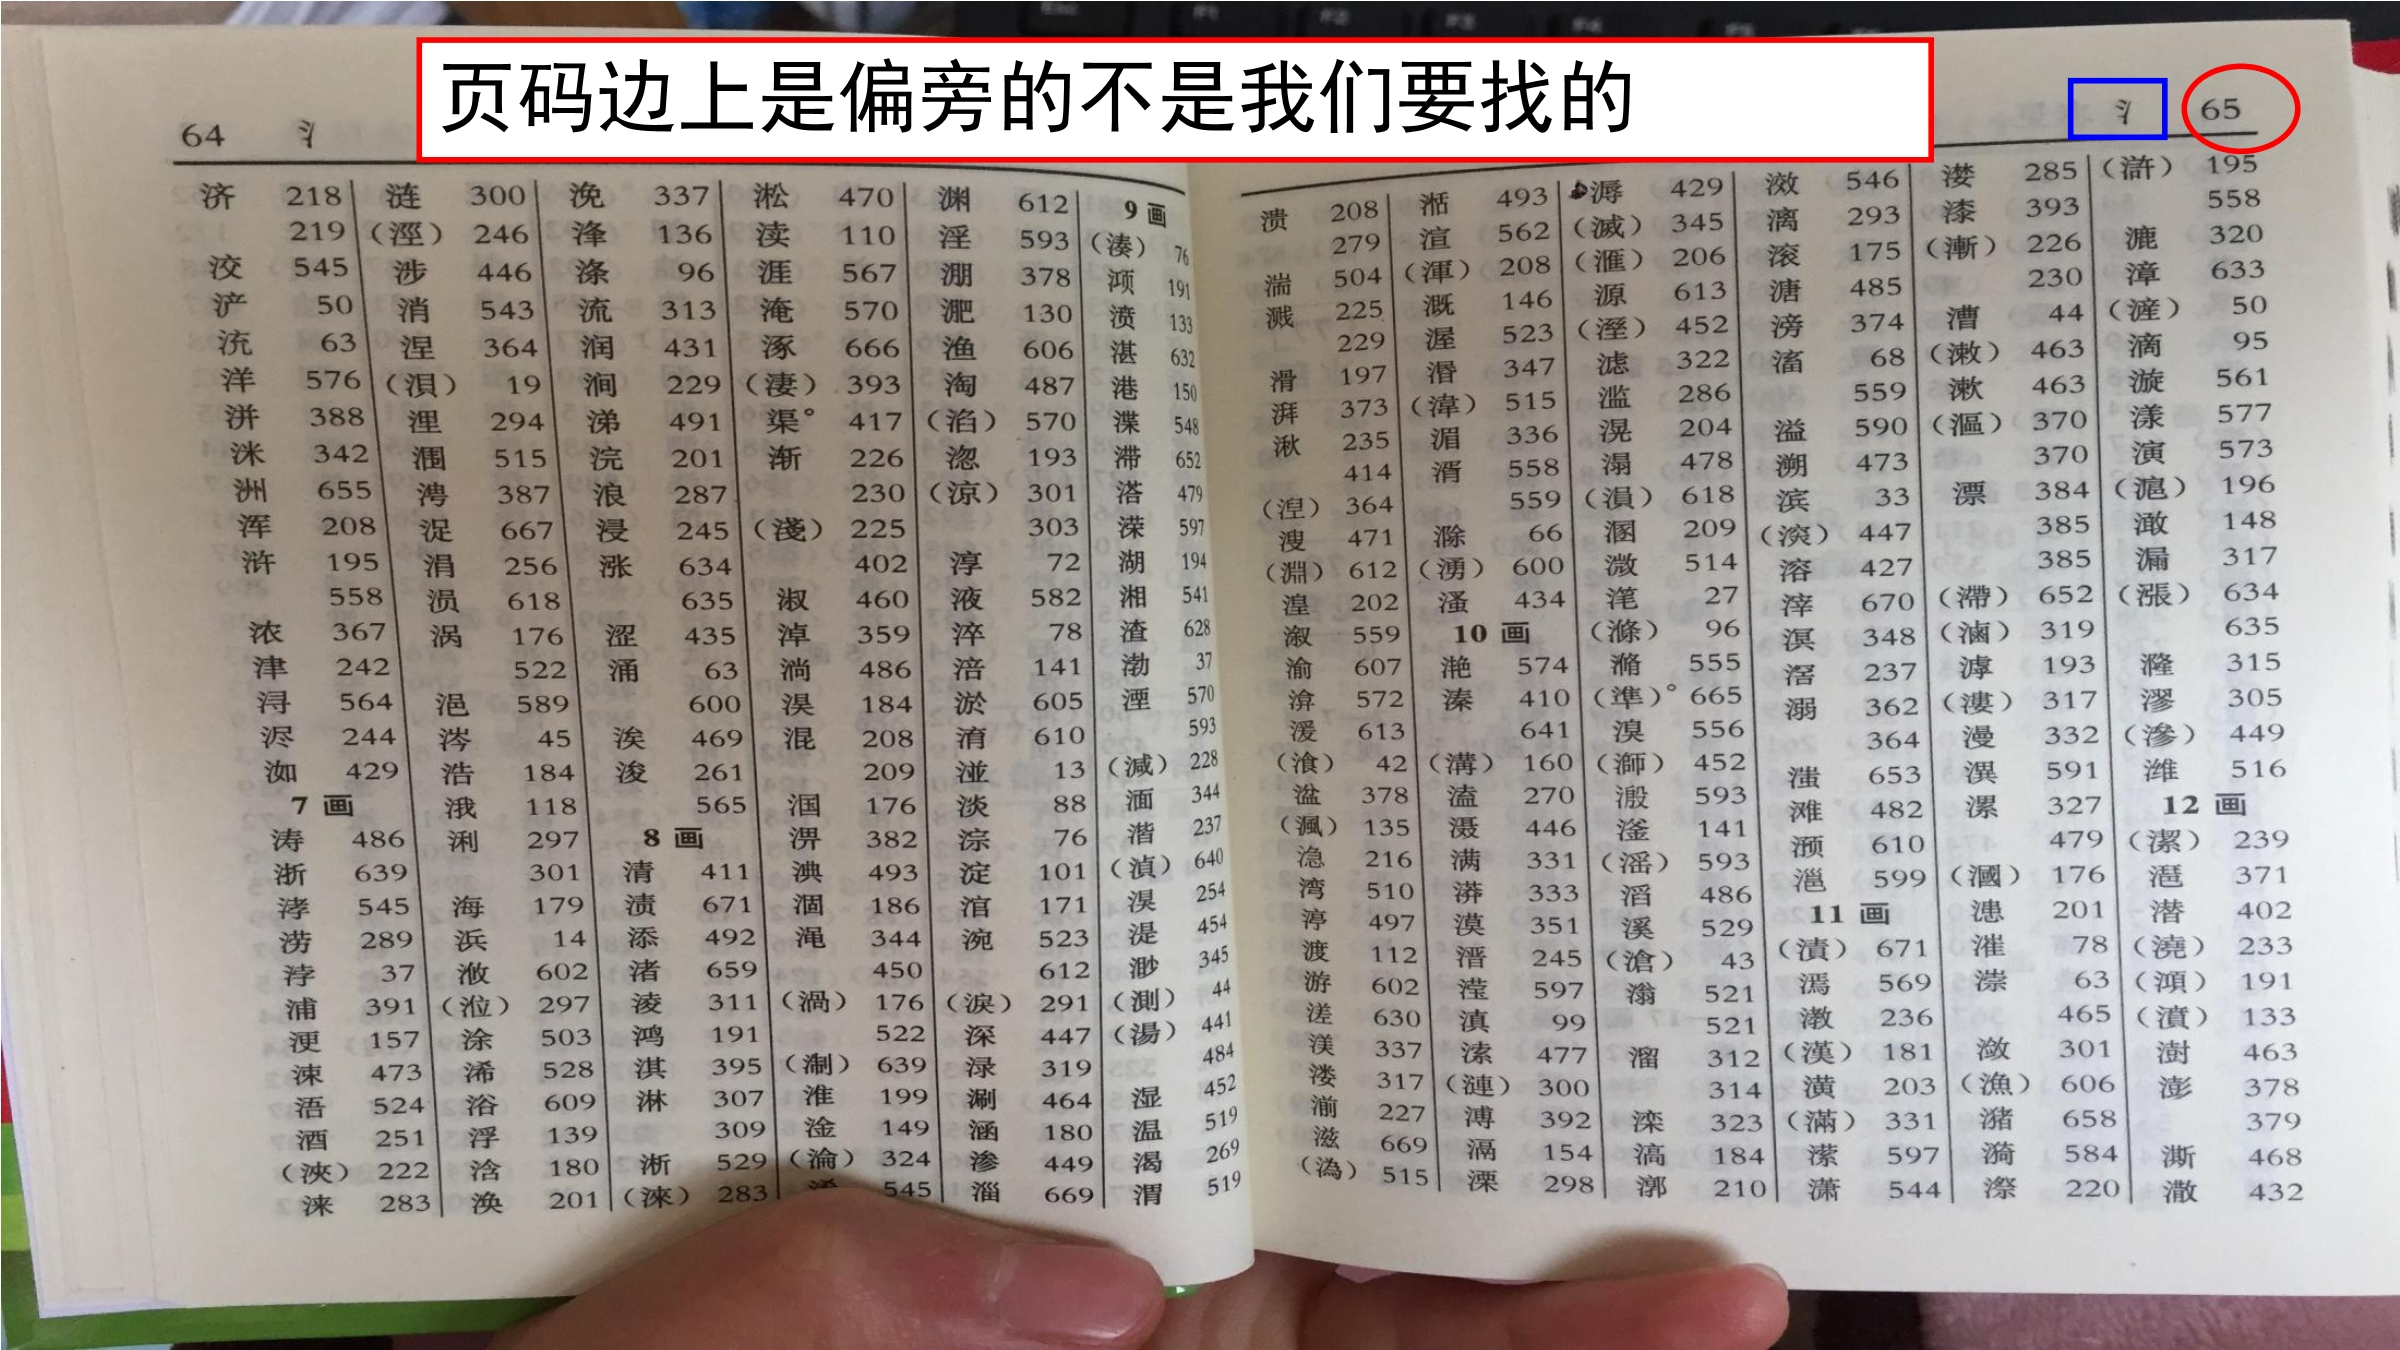 页码边上是偏旁的不是我们要找的
64 氵
济 218
219
洨 545
浐 50
流 63
洋 576
洴 388
洣 342
洲 655
浑 208
浒 195
558
浓 367
津 242
浔 564
浕 244
洳 429
7 画
涛 486
浙 639
涍 545
涝 289
浡 37
浦 391
浭 157
涑 473
浯 524
酒 251
(浹) 222
涞 283
涟 300
(涇) 246
涉 446
消 543
涅 364
(浿) 19
浬 294
涠 515
涄 387
浞 667
涓 256
涢 618
涡 176
522
浥 589
涔 45
浩 184
涐 118
浰 297
301
海 179
浜 14
浟 602
(涖) 297
涂 503
浠 528
浴 609
浮 139
浛 180
涣 201
浼 337
浲 136
涤 96
流 313
润 431
涧 229
涕 491
浣 201
浪 287
浸 245
涨 634
635
涩 435
涌 63
600
涘 469
浚 261
565
8 画
清 411
渍 671
添 492
渚 659
凌 311
鸿 191
淇 395
淋 307
309
淅 529
(淶) 283
淞 470
渎 110
涯 567
淹 570
涿 666
(淒) 393
渠° 417
渐 226
230
(淺) 225
402
淑 460
淖 359
淌 486
淏 184
混 208
209
涠 176
淠 382
淟 493
涸 186
渑 344
450
(渦) 176
522
(淛) 639
淮 199
淦 149
(淪) 324
淆 545
渊 612
淫 593
淜 378
淝 130
渔 606
淘 487
(淊) 570
淴 193
(涼) 301
303
淳 72
液 582
淬 78
涪 141
淤 605
淯 610
湴 13
淡 88
淙 76
淀 101
涫 171
涴 523
612
(淚) 291
深 447
渌 319
涮 464
涵 180
渗 449
淄 669
9 画
(湊) 76
澒 191
渍 133
湛 632
港 150
渫 548
滞 652
溚 479
溁 597
湖 194
湘 541
渣 628
渤 37
湮 570
593
(減) 228
湎 344
湝 237
(湞) 640
湨 254
湜 454
渺 345
(測) 44
(湯) 441
484
湿 452
温 519
渴 269
渭 519
氵 65
溃 208
279
湍 504
溅 225
229
滑 197
湃 373
湫 235
414
(湼) 364
溲 471
(淵) 612
湟 202
溆 559
渝 607
湆 572
湲 613
(飡) 42
湓 378
(渢) 135
湱 216
湾 510
渟 497
渡 112
游 602
溠 630
渼 337
溇 317
湔 227
滋 669
(溈) 515
湉 493
渲 562
(渾) 208
溉 146
渥 523
湣 347
(湋) 515
湄 336
湑 558
559
滁 66
(湧) 600
溞 434
10 画
滟 574
溱 410
641
(溝) 160
溘 270
滠 446
满 331
漭 333
漠 351
溍 245
滢 597
滇 99
溹 477
(漣) 300
溥 392
滆 154
溧 298
溽 429
(滅) 345
(滙) 206
源 613
(溼) 452
滤 322
滥 286
滉 204
溻 478
(溳) 618
溷 209
溦 514
滗 27
(滌) 96
滫 555
(準)° 665
溴 556
(溮) 452
溵 593
滏 141
(滛) 593
滔 486
溪 529
(滄) 43
滃 521
521
溜 312
314
滦 323
滈 184
漷 210
滧 546
漓 293
滚 175
溏 485
滂 374
滀 68
559
溢 590
溯 473
滨 33
(溇) 447
溶 427
滓 670
溟 348
滘 237
溺 362
364
滍 653
滩 482
滪 610
滽 599
11 画
(漬) 671
漹 569
漖 236
(漢) 181
潢 203
(滿) 331
潆 597
潇 544
漤 285
漆 393
(漸) 226
230
漕 44
(漱) 463
漱 463
(漚) 370
370
漂 384
385
385
(滯) 652
(滷) 319
滹 193
(漊) 317
漫 332
潩 591
漯 327
479
(漍) 176
漶 201
漼 78
漴 63
465
潋 301
(漁) 606
潴 658
漪 584
漈 220
(滸) 195
558
漉 320
漳 633
(滻) 50
滴 95
漩 561
漾 577
演 573
(滬) 196
澉 148
漏 317
(漲) 634
635
漋 315
漻 305
(滲) 449
潍 516
12 画
(潔) 239
潖 371
潜 402
(澆) 233
(澒) 191
(濆) 133
澍 463
澎 378
379
澌 468
潵 432